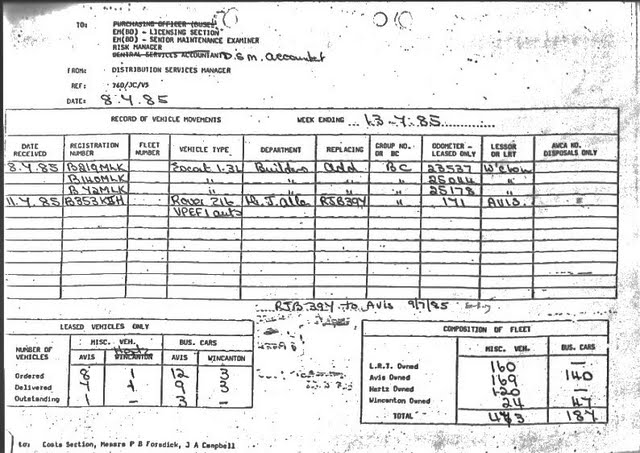 TO: PURCHASING OFFICER (BUSE)
EM(BD) - LICENSING SECTION
EM(BD) - SENIOR MAINTENANCE EXAMINER
RISK MANAGER
GENERAL SERVICES ACCOUNTANT D.S.M. Accountant
FROM: DISTRIBUTION SERVICES MANAGER
REF: 760/JC/V3
DATE: 8.4.85
RECORD OF VEHICLE MOVEMENTS WEEK ENDING 13-4-85
DATE RECEIVED REGISTRATION NUMBER FLEET NUMBER VEHICLE TYPE DEPARTMENT REPLACING GROUP NO. OR BC ODOMETER - LEASED ONLY LESSOR OR LRT AVCA NO. DISPOSALS ONLY
8.4.85 B819MLK Escort 1.3L Builders Add BC 23537 W'cton
B140MLK " " " " 25044 "
B42MLK " " " " 25178 "
11.4.85 B353KJH Rover 216 RJB39Y " 171 AVIS.
RJB 39Y to Avis 9/7/85
LEASED VEHICLES ONLY
NUMBER OF VEHICLES MISC. VEH. BUS. CARS
Hertz
AVIS WINCANTON AVIS WINCANTON
Ordered 8 1 12 3
Delivered 7 1 9 3
Outstanding 1 - 3 -
COMPOSITION OF FLEET
MISC. VEH. BUS. CARS
L.R.T. Owned 160 —
Avis Owned 169 140
Hertz Owned 120 —
Wincanton Owned 24 47
TOTAL 473 187
to: Costs Section, Messrs P B Forsdick, J A Campbell